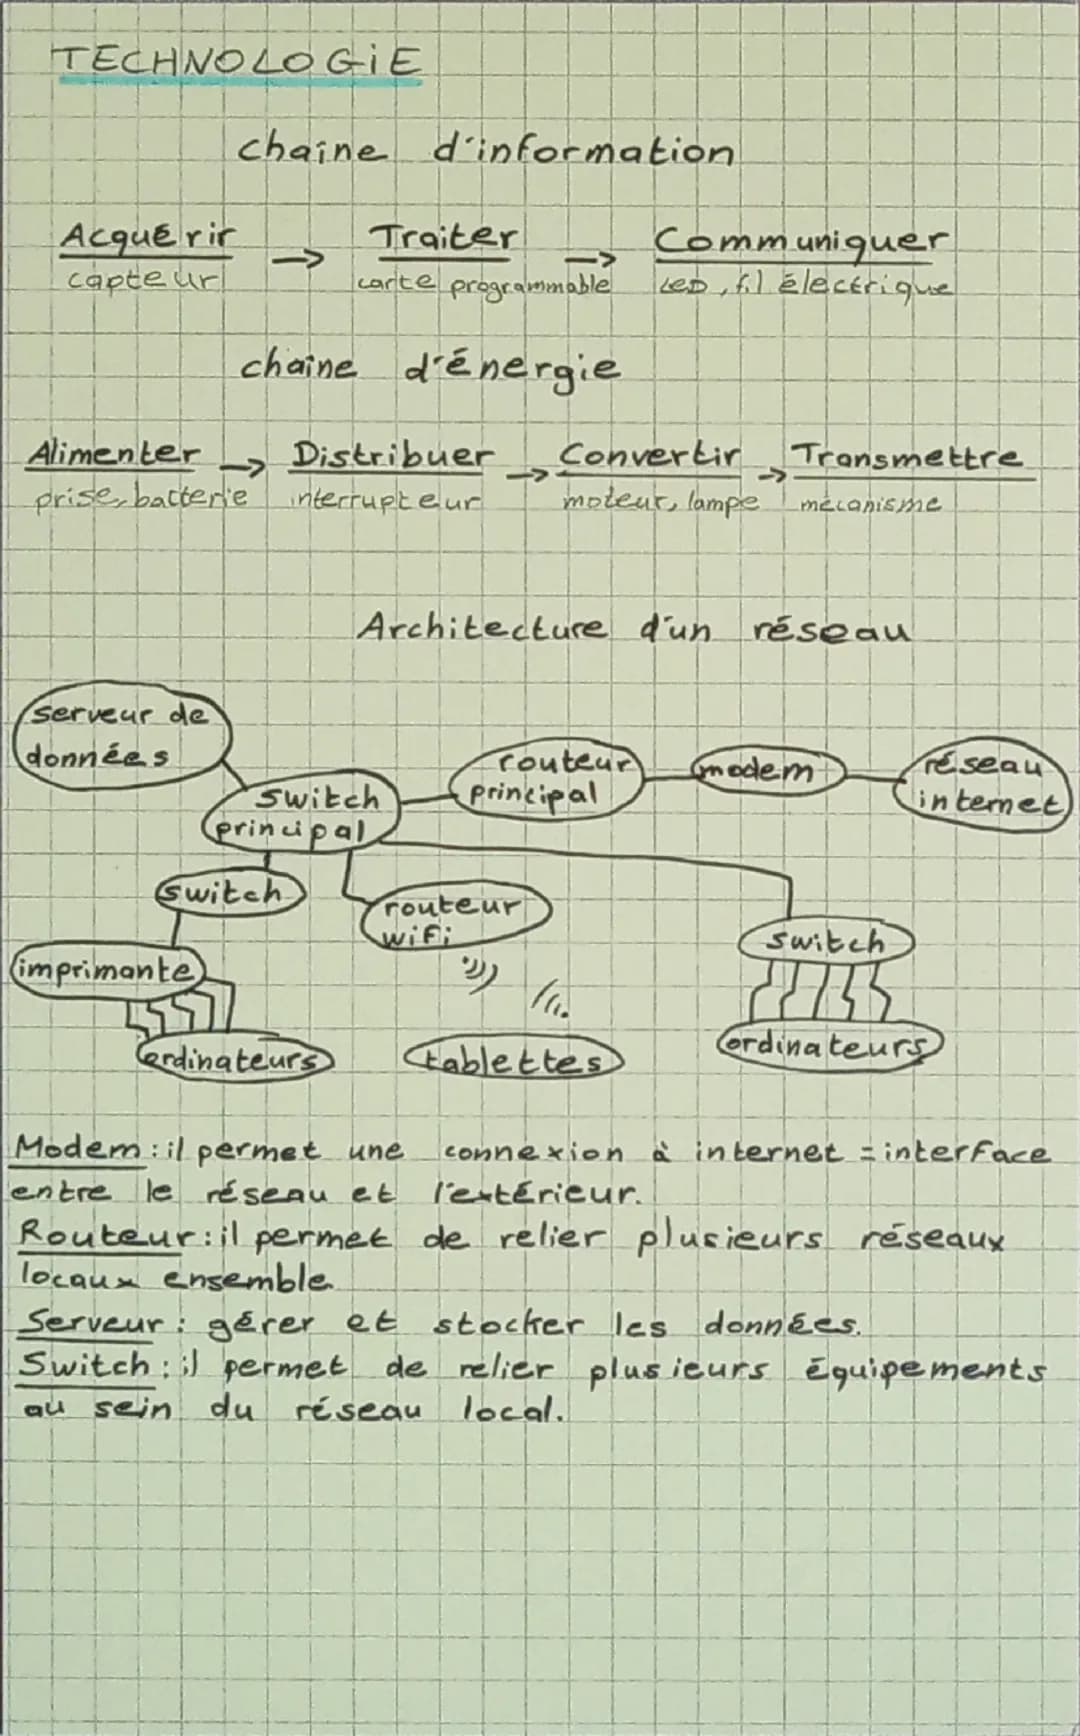 TECHNOLOGiE
chaîne d'information
Acquérir → Traiter → Communiquer
capteur carte programmable LED, fil électrique
chaîne d'énergie
Alimenter → Distribuer → Convertir → Transmettre
prise, batterie interrupteur moteur, lampe mécanisme
Architecture d'un réseau
serveur de
données
routeur
principal
modem
réseau
internet
switch
principal
switch
routeur
wifi
switch
imprimante
ordinateurs
tablettes
ordinateurs
Modem : il permet une connexion à internet = interface
entre le réseau et l'extérieur.
Routeur : il permet de relier plusieurs réseaux
locaux ensemble
Serveur : gérer et stocker les données.
Switch : il permet de relier plusieurs équipements
au sein du réseau local.